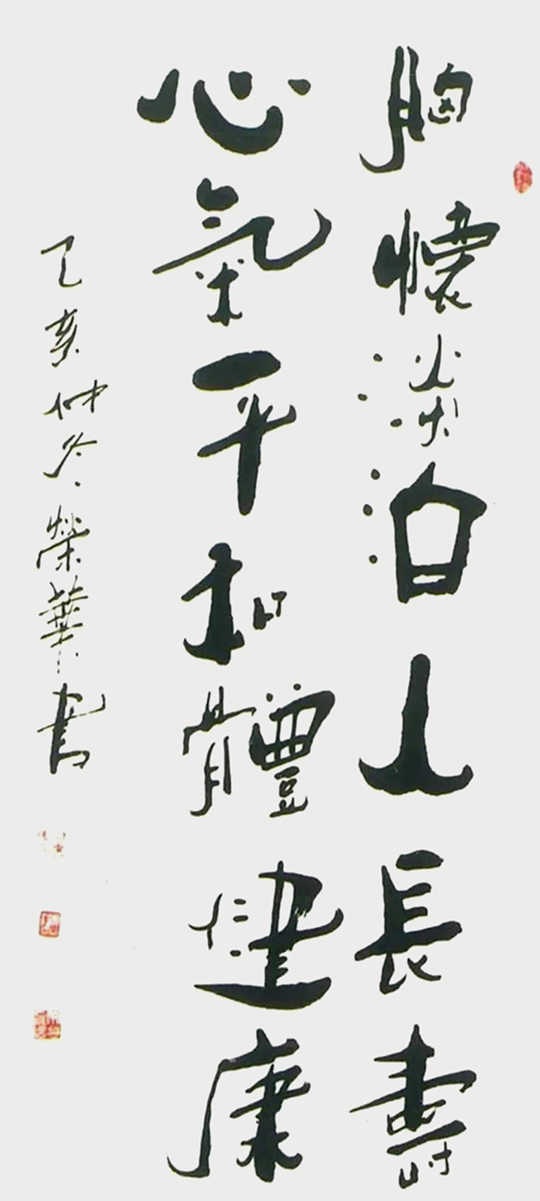 胸懷淡泊人長壽
心氣平和體健康
乙亥仲冬榮華書